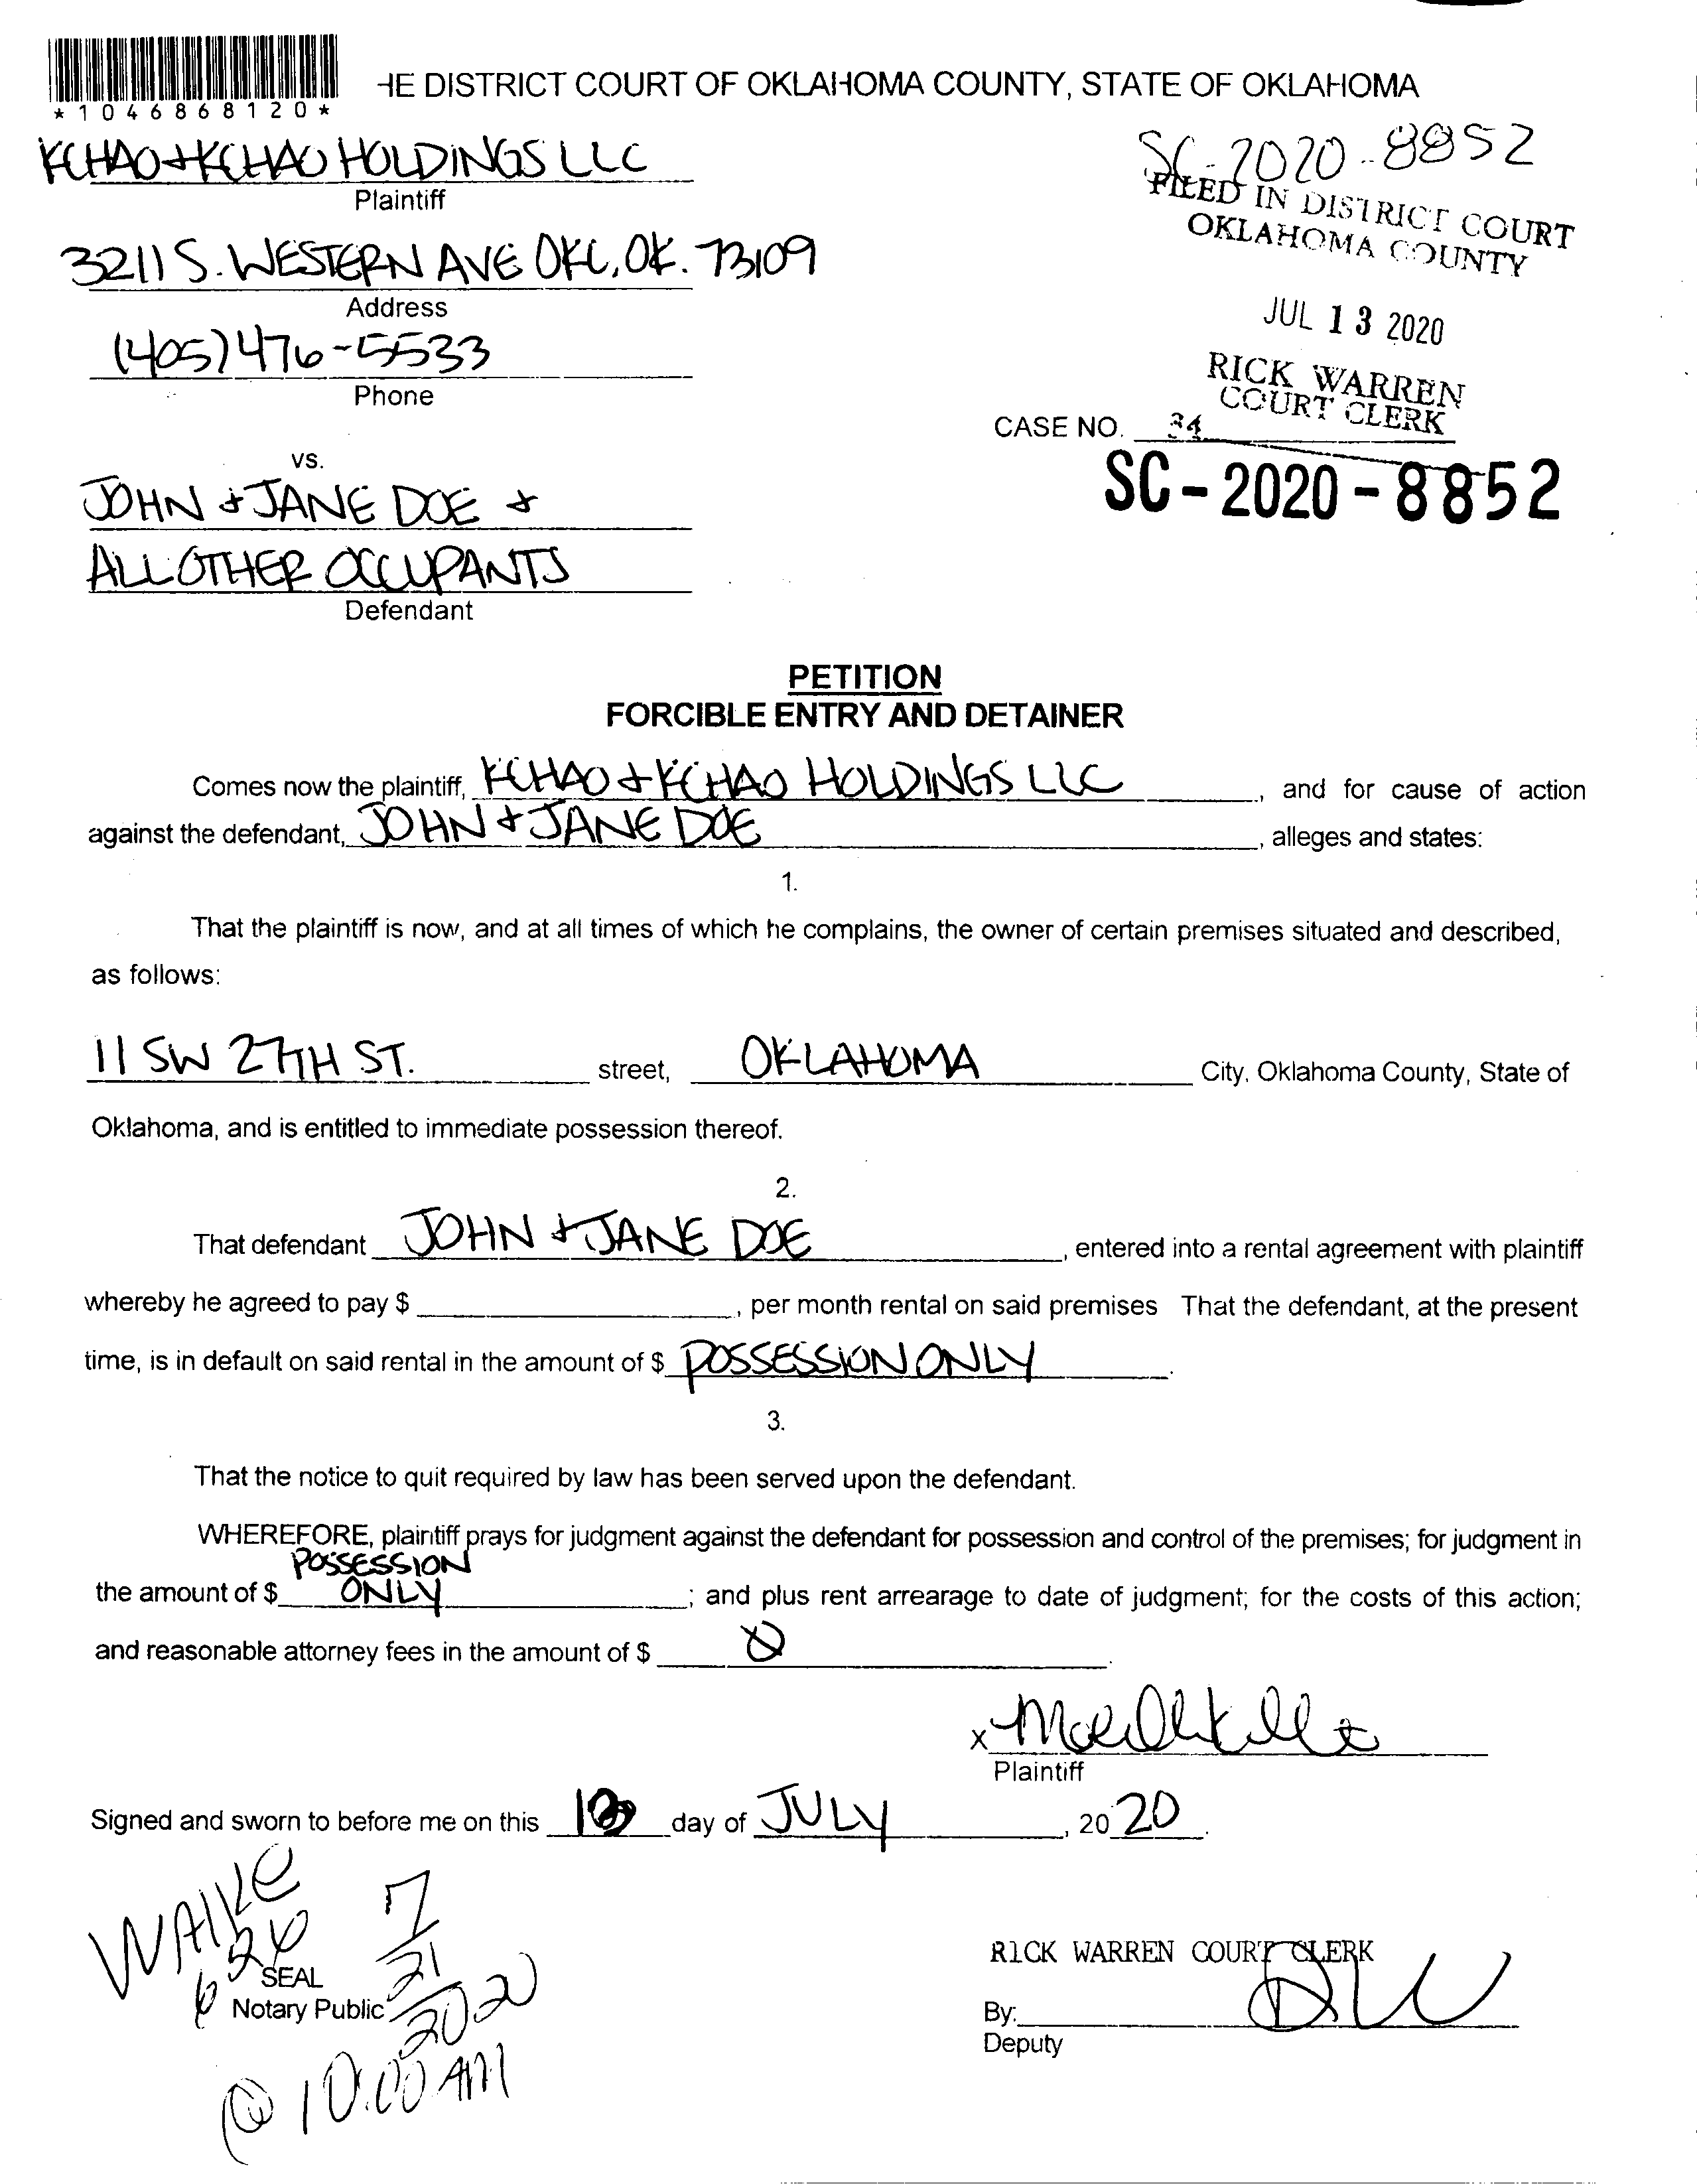 *1046868120*
HE DISTRICT COURT OF OKLAHOMA COUNTY, STATE OF OKLAHOMA
KCHAO + KCHAO HOLDINGS LLC
Plaintiff
SC-2020-8852
FILED IN DISTRICT COURT
OKLAHOMA COUNTY
3211 S. WESTERN AVE OKC, OK. 73109
Address
JUL 13 2020
(405) 476-5533
Phone
RICK WARREN
COURT CLERK
CASE NO. 34
SC-2020-8852
vs.
JOHN + JANE DOE +
ALL OTHER OCCUPANTS
Defendant
PETITION
FORCIBLE ENTRY AND DETAINER
Comes now the plaintiff, KCHAO + KCHAO HOLDINGS LLC, and for cause of action
against the defendant, JOHN + JANE DOE, alleges and states:
1.
That the plaintiff is now, and at all times of which he complains, the owner of certain premises situated and described,
as follows:
11 SW 27TH ST. street, OKLAHOMA City, Oklahoma County, State of
Oklahoma, and is entitled to immediate possession thereof.
2.
That defendant JOHN + JANE DOE, entered into a rental agreement with plaintiff
whereby he agreed to pay $ , per month rental on said premises That the defendant, at the present
time, is in default on said rental in the amount of $ POSSESSION ONLY.
3.
That the notice to quit required by law has been served upon the defendant.
WHEREFORE, plaintiff prays for judgment against the defendant for possession and control of the premises; for judgment in
POSSESSION
the amount of $ ONLY; and plus rent arrearage to date of judgment; for the costs of this action;
and reasonable attorney fees in the amount of $ 0.
x
Plaintiff
Signed and sworn to before me on this 13 day of JULY, 2020.
SEAL
Notary Public
7/21/2020
@ 10:00 AM
RICK WARREN COURT CLERK
By:
Deputy